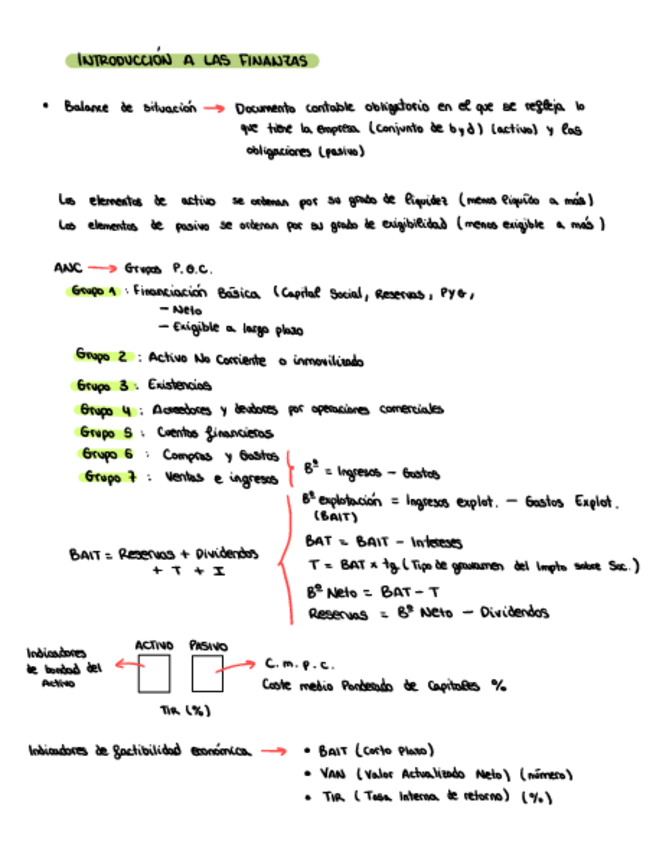 INTRODUCCIÓN A LAS FINANZAS
• Balance de situación → Documento contable obligatorio en el que se refleja lo
que tiene la empresa (conjunto de b y d) (activo) y las
obligaciones (pasivo)
Los elementos de activo se ordenan por su grado de liquidez (menos líquido a más)
Los elementos de pasivo se ordenan por su grado de exigibilidad (menos exigible a más)
ANC → Grupos P.G.C.
Grupo 1 : Financiación Básica (Capital Social, Reservas, PYG,
- Neto
- Exigible a largo plazo
Grupo 2 : Activo No Corriente o inmovilizado
Grupo 3 : Existencias
Grupo 4 : Acreedores y deudores por operaciones comerciales
Grupo 5 : Cuentas financieras
Grupo 6 : Compras y Gastos
Grupo 7 : Ventas e ingresos
Bº = Ingresos - Gastos
Bº explotación = Ingresos explot. - Gastos Explot.
(BAIT)
BAT = BAIT - Intereses
T = BAT x tg (Tipo de gravamen del Impto sobre Soc.)
Bº Neto = BAT - T
Reservas = Bº Neto - Dividendos
BAIT = Reservas + Dividendos
+ T + I
Indicadores
de bondad del
Activo
ACTIVO PASIVO
TIR (%)
→ C.m.p.c.
Coste medio Ponderado de Capitales %
Indicadores de factibilidad económica → • BAIT (Corto Plazo)
• VAN (Valor Actualizado Neto) (número)
• TIR (Tasa Interna de retorno) (%)